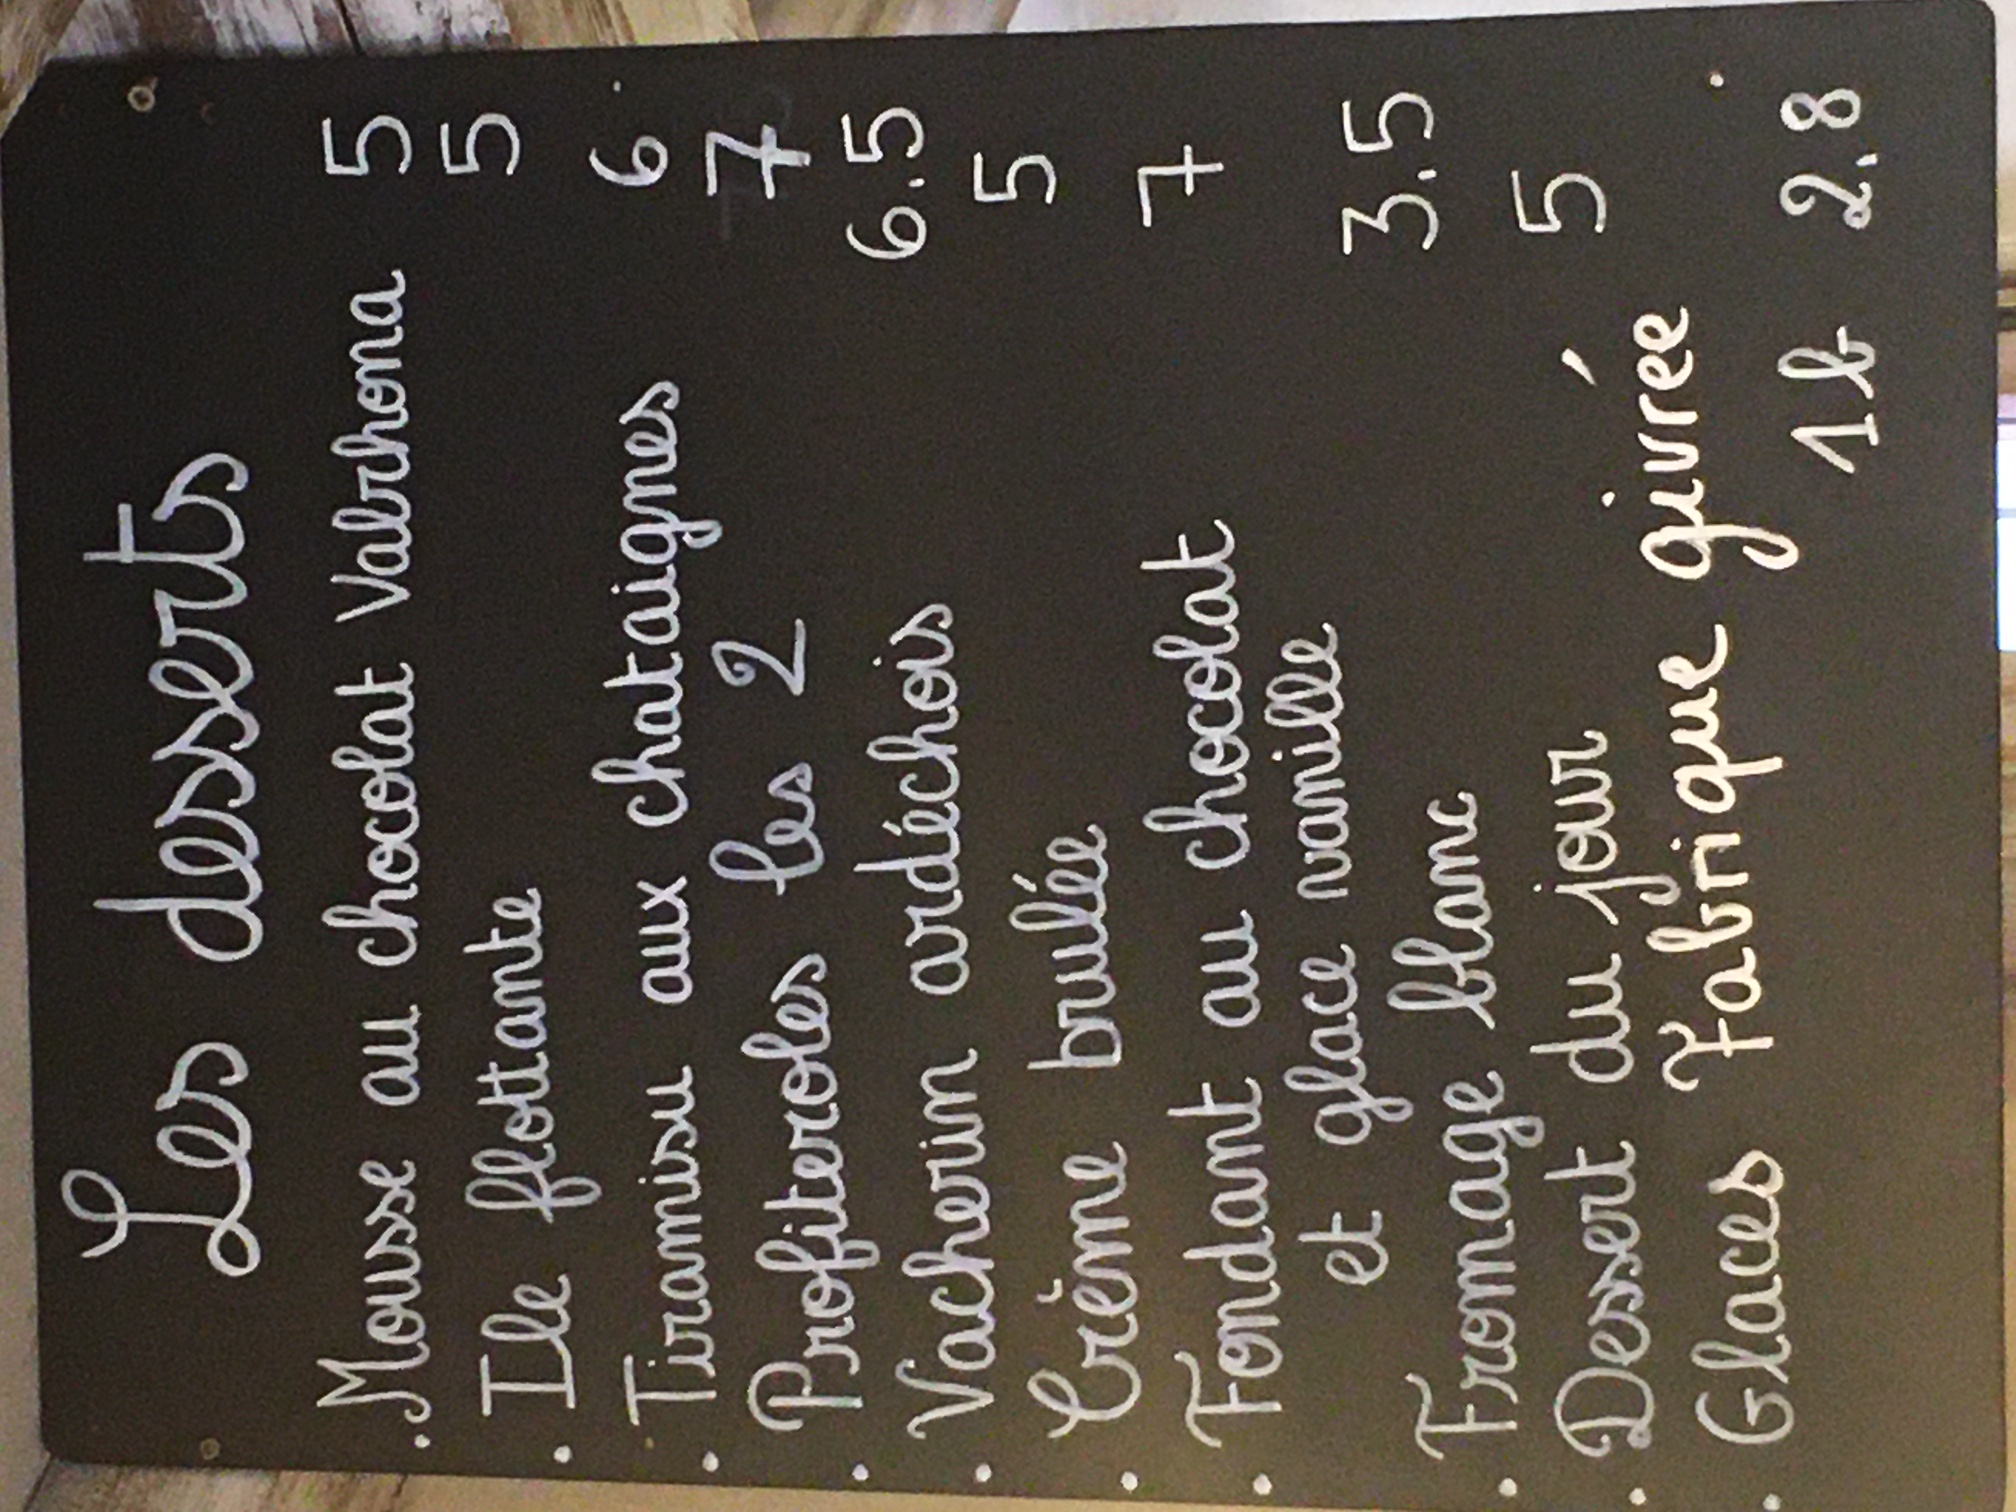 Les desserts
Mousse au chocolat Valrhona 5
Ile flottante 5
Tiramisu aux chataignes 6
Profiteroles les 2 7
Vacherin ardéchois 6.5
Crème brulée 5
Fondant au chocolat 7
et glace vanille
Fromage blanc 3.5
Dessert du jour 5
Glaces Fabrique givrée
1b 2.8